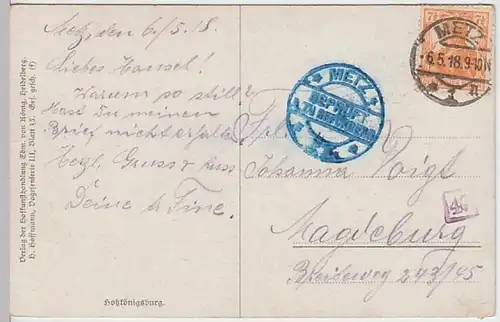 Metz, den 6/5.18.
Liebes Hansel!
Warum so still?
Hast Du meinen
Brief nicht erhalten?
Herzl. Gruss & Kuss
Deine Tine.
Hohkönigsburg.
Verlag der Hofkunsthandlung Edm. von König, Heidelberg.
H. Hoffmann, Vogesenserie III, Blatt 17. Ges. gesch.
METZ
GEPRÜFT
7½
METZ
6.5.18.9-10N
Johanna Voigt
Magdeburg
Breiteweg 243/45